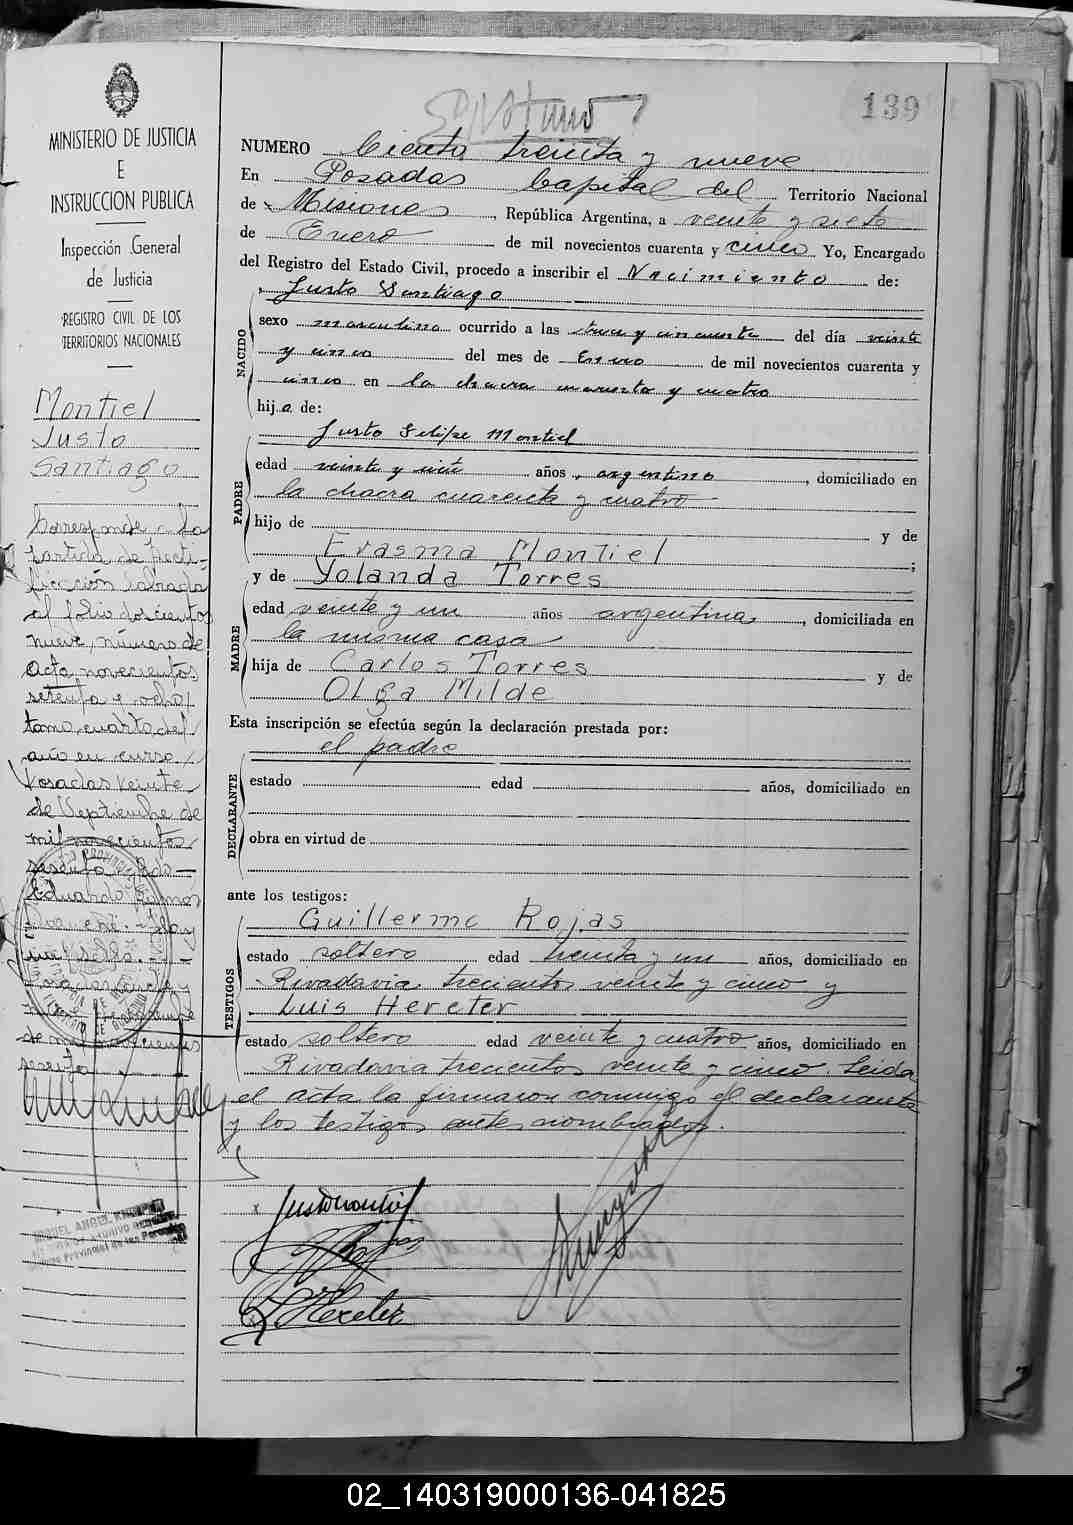 139
MINISTERIO DE JUSTICIA
E
INSTRUCCION PUBLICA
Inspección General
de Justicia
REGISTRO CIVIL DE LOS
TERRITORIOS NACIONALES
Montiel
Justo
Santiago
Corresponde a la
partida de recti-
ficación labrada
al folio doscientos
nueve, número de
acta novecientos
setenta y ocho,
tomo cuarto del
año en curso,
Posadas veinte
de Septiembre de
mil novecientos
sesenta
Eduardo Ramos
NUMERO Ciento treinta y nueve
En Posadas Capital del Territorio Nacional
de Misiones, República Argentina, a veinte y siete
de Enero de mil novecientos cuarenta y cinco Yo, Encargado
del Registro del Estado Civil, procedo a inscribir el Nacimiento de:
Justo Santiago
NACIDO
sexo masculino ocurrido a las trece y cincuenta del día veinte
y cinco del mes de Enero de mil novecientos cuarenta y
cinco en la chacra cuarenta y cuatro
hijo de:
Justo Felipe Montiel
PADRE
edad veinte y siete años, argentino, domiciliado en
la chacra cuarenta y cuatro
hijo de y de
Erasma Montiel;
y de Yolanda Torres
MADRE
edad veinte y un años argentina, domiciliada en
la misma casa
hija de Carlos Torres y de
Olga Milde
Esta inscripción se efectúa según la declaración prestada por:
el padre
DECLARANTE
estado edad años, domiciliado en
obra en virtud de
ante los testigos:
Guillermo Rojas
TESTIGOS
estado soltero edad treinta y un años, domiciliado en
Rivadavia trecientos veinte y cinco y
Luis Hereter
estado soltero edad veinte y cuatro años, domiciliado en
Rivadavia trecientos veinte y cinco. Leida
el acta la firmaron conmigo el declarante
y los testigos antes nombrados.
Justo Montiel
L. Hereter
02_140319000136-041825